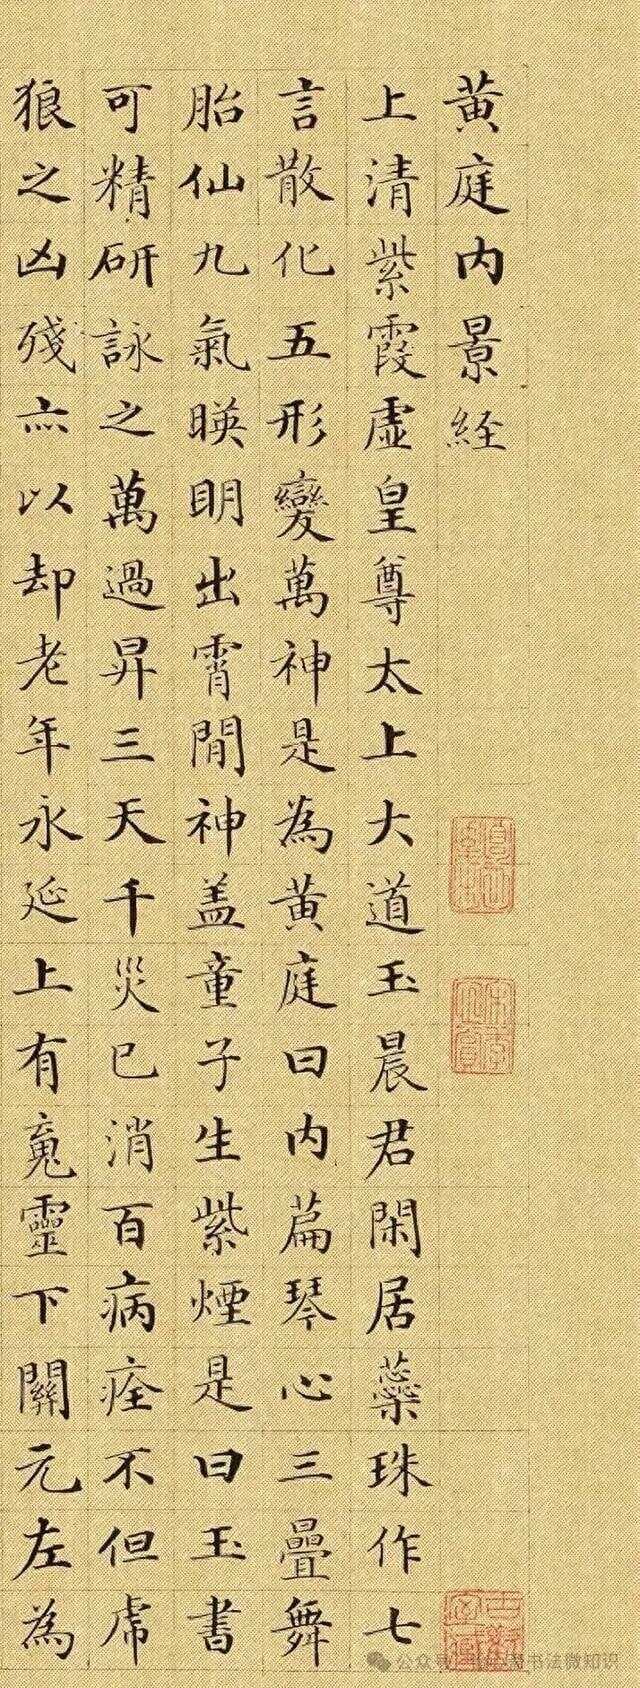 黄庭内景経
上清紫霞虚皇尊太上大道玉晨君閑居蘂珠作七
言散化五形變萬神是為黄庭曰内萹琴心三疊舞
胎仙九氣暎明出霄閒神盖童子生紫煙是曰玉書
可精研詠之萬過昇三天千災已消百病痊不但虎
狼之凶殘亦以却老年永延上有䰟靈下關元左為
公众号 书法微知识